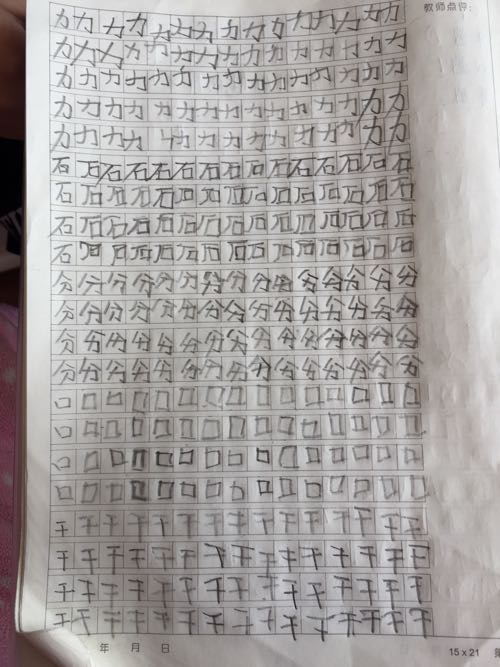 教师点评：
力力力力力力力力力力力力力力力
力力力力力力力力力力力力力力力
力力力力力力力力力力力力力力力
力力力力力力力力力力力力力力力
力力力力力力力力力力力力力力力
石石石石石石石石石石石石石石石
石石石石石石石石石石石石石石石
石石石石石石石石石石石石石石石
石石石石石石石石石石石石石石石
分分分分分分分分分分分分分分分
分分分分分分分分分分分分分分分
分分分分分分分分分分分分分分分
分分分分分分分分分分分分分分分
口口口口口口口口口口口口口口口
口口口口口口口口口口口口口口口
口口口口口口口口口口口口口口口
口口口口口口口口口口口口口口口
干干干干干干干干干干干干干干干
干干干干干干干干干干干干干干干
干干干干干干干干干干干干干干干
干干干干干干干干干干干干干干干
年 月 日 15 x 21